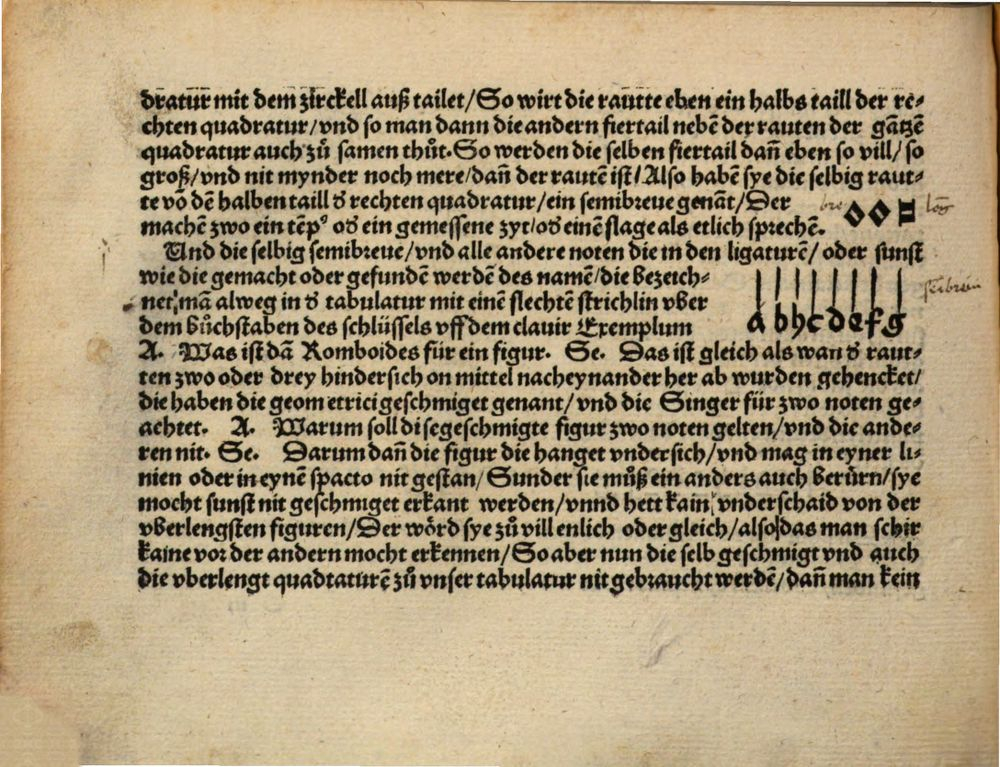 dratur̄r mit dem zirckell auß tailet/So wirt die rautte eben ein halbs taill der re⸗
chten quadratur/vnd so man dann die andern fiertail nebē der rauten der gātzē
quadratur auch zů samen thůt. So werden die selben fiertail dan̄ eben so vill/so
groß/vnd nit mynder noch mere/dan̄ der rautē ist/Also habē sye die selbig raut⸗
te vō dē halben taill d̄ rechten quadratur/ein semibreue genāt/Der
machē zwo ein tēpꝰ od̄ ein gemessene zyt/od̄ einē slage als etlich sprechē.
Und die selbig semibreue/vnd alle andere noten die in den ligaturē/ oder sunst
wie die gemacht oder gefundē werdē des namē/die bezeich⸗
net mā alweg in d̄ tabulatur mit einē slechtē strichlin vber
dem bůchstaben des schlüssels vff dem clauir Exemplum
a b h c d e f g
A. Was ist dā Romboides für ein figur. Se. Das ist gleich als wan d̄ raut⸗
ten zwo oder drey hindersich on mittel nacheynander her ab wurden gehencket/
die haben die geometrici geschmiget genant/vnd die Singer für zwo noten ge⸗
achtet. A. Warum soll dise geschmigte figur zwo noten gelten/vnd die ande⸗
ren nit. Se. Darum dan̄ die figur die hanget vndersich/vnd mag in eyner li⸗
nien oder in eynē spacto nit gestan/ Sunder sie můß ein anders auch berürn/sye
mocht sunst nit geschmiget erkant werden/vnnd hett kain vnderschaid von der
vberlengsten figuren/Der wörd sye zů vill enlich oder gleich/also das man schir
kaine vor der andern mocht erkennen/So aber nun die selb geschmigt vnd auch
die vberlengt quadtaturē zů vnser tabulatur nit gebraucht werdē/dan̄ man kein